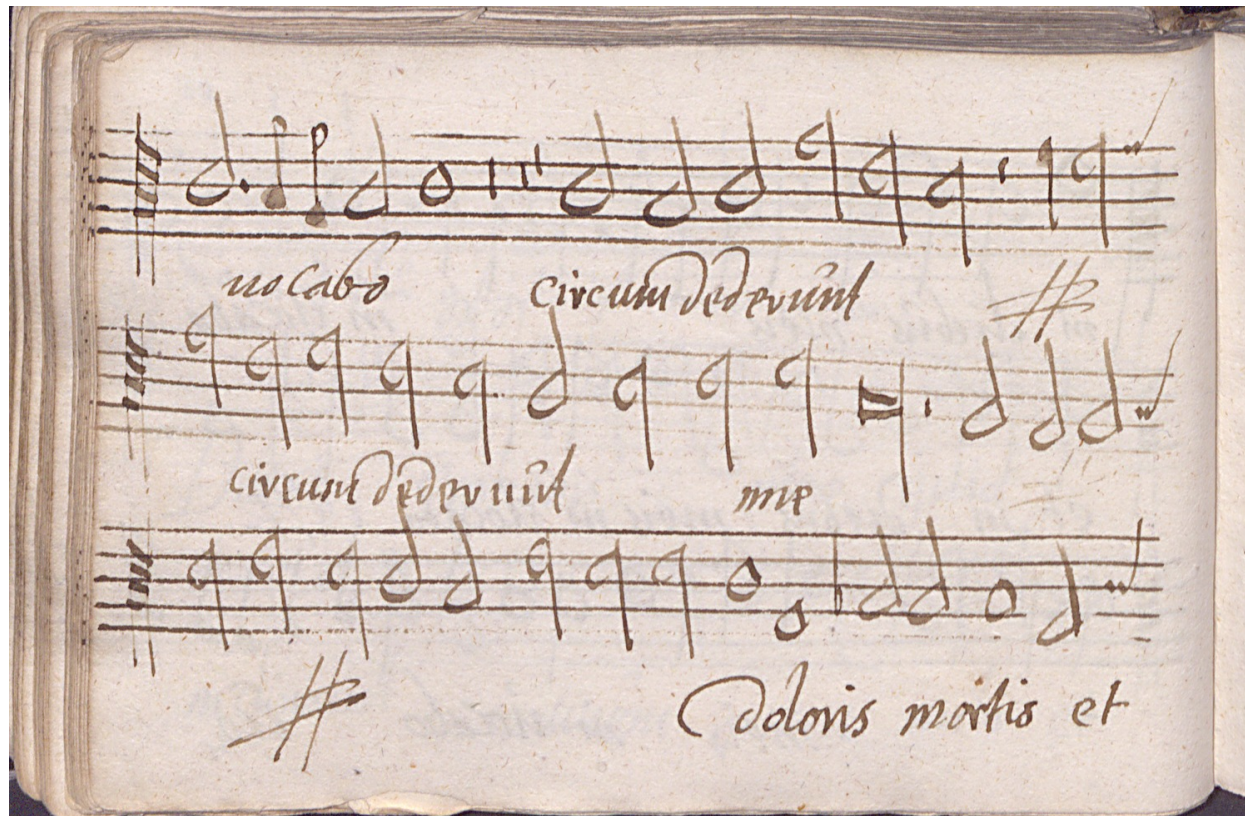 uocabo circum dederūnt
circum dederūnt me
doloris mortis et